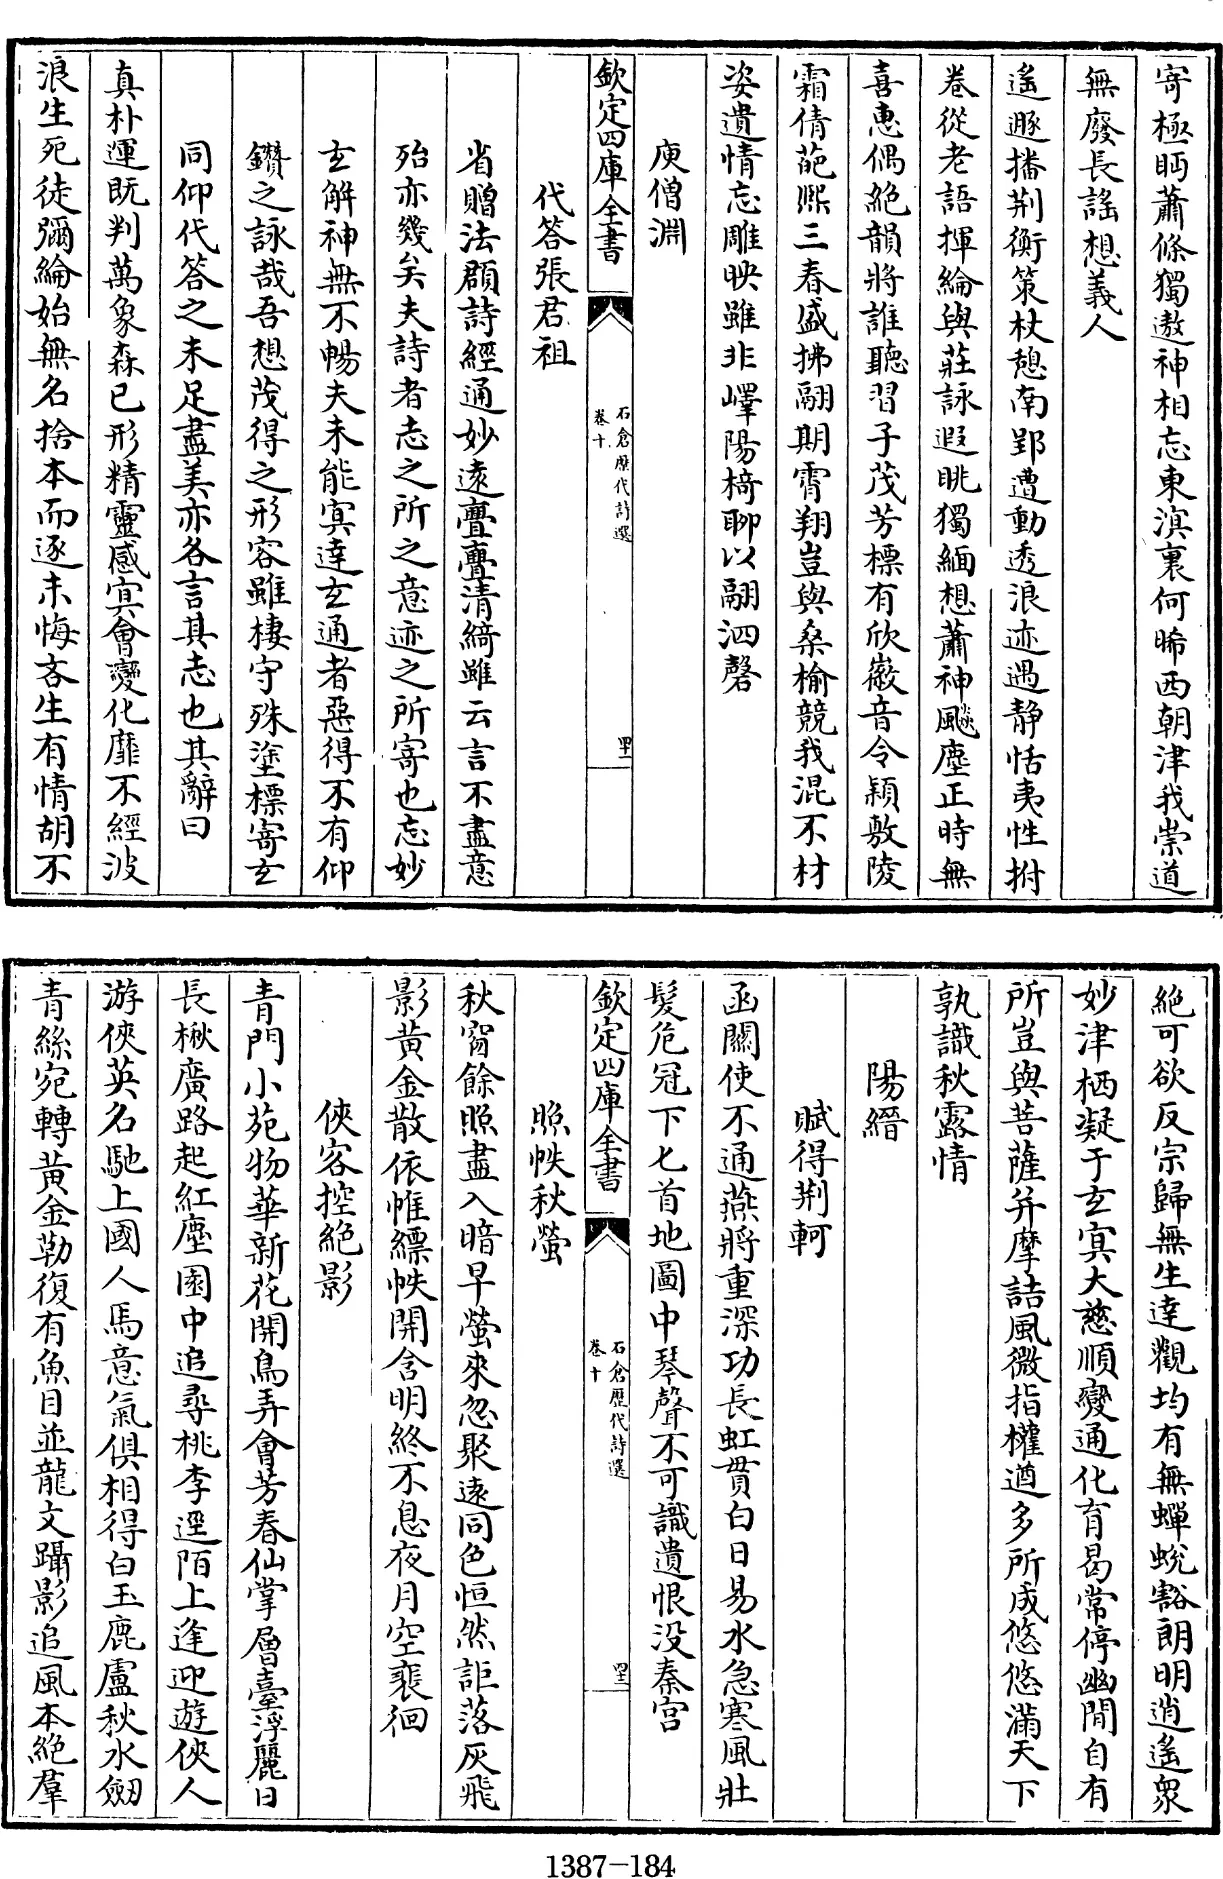 寄極眄蕭條獨遨神相忘東溟裏何晞西朝津我崇道
無廢長謡想義人
遙遯播荆衡策杖憩南郢遭動透浪迹遇静恬夷性拊
卷從老語揮綸與莊詠遐眺獨緬想蕭神飈塵正時無
喜惠偶絶韻將誰聽習子茂芳標有欣徽音令穎敷陵
霜倩葩熈三春盛拂翮期霄翔豈與桑榆競我混不材
姿遺情忘雕映雖非嶧陽椅聊以翮泗磬
庾僧淵
欽定四庫全書
石倉歴代詩選
卷十
四十一
代答張君祖
省贈法頵詩經通妙遠亹亹清綺雖云言不盡意
殆亦幾矣夫詩者志之所之意迹之所寄也忘妙
玄解神無不暢夫未能㝠達玄通者惡得不有仰
鑽之詠哉吾想茂得之形容雖棲守殊塗標寄玄
同仰代答之未足盡美亦各言其志也其辭曰
真朴運既判萬象森已形精靈感㝠會變化靡不經波
浪生死徒彌綸始無名捨本而逐末悔吝生有情胡不
絶可欲反宗歸無生達觀均有無蟬蜕豁朗明逍遙衆
妙津栖凝于玄㝠大慈順變通化育曷常停幽閒自有
所豈與菩薩并摩詰風微指權遒多所成悠悠滿天下
孰識秋露情
陽縉
賦得荆軻
函關使不通燕將重深功長虹貫白日易水急寒風壯
髮危冠下匕首地圖中琴聲不可識遺恨没秦宫
欽定四庫全書
石倉歴代詩選
卷十
四十二
照帙秋螢
秋窗餘照盡入暗早螢來忽聚遠同色恒然詎落灰飛
影黄金散依帷縹帙開含明終不息夜月空裵徊
俠客控絶影
青門小苑物華新花開鳥弄會芳春仙掌層臺浮麗日
長楸廣路起紅塵園中追尋桃李逕陌上逢迎遊俠人
游俠英名馳上國人馬意氣俱相得白玉鹿盧秋水劒
青絲宛轉黄金勒復有魚目並龍文躡影追風本絶羣
1387-184